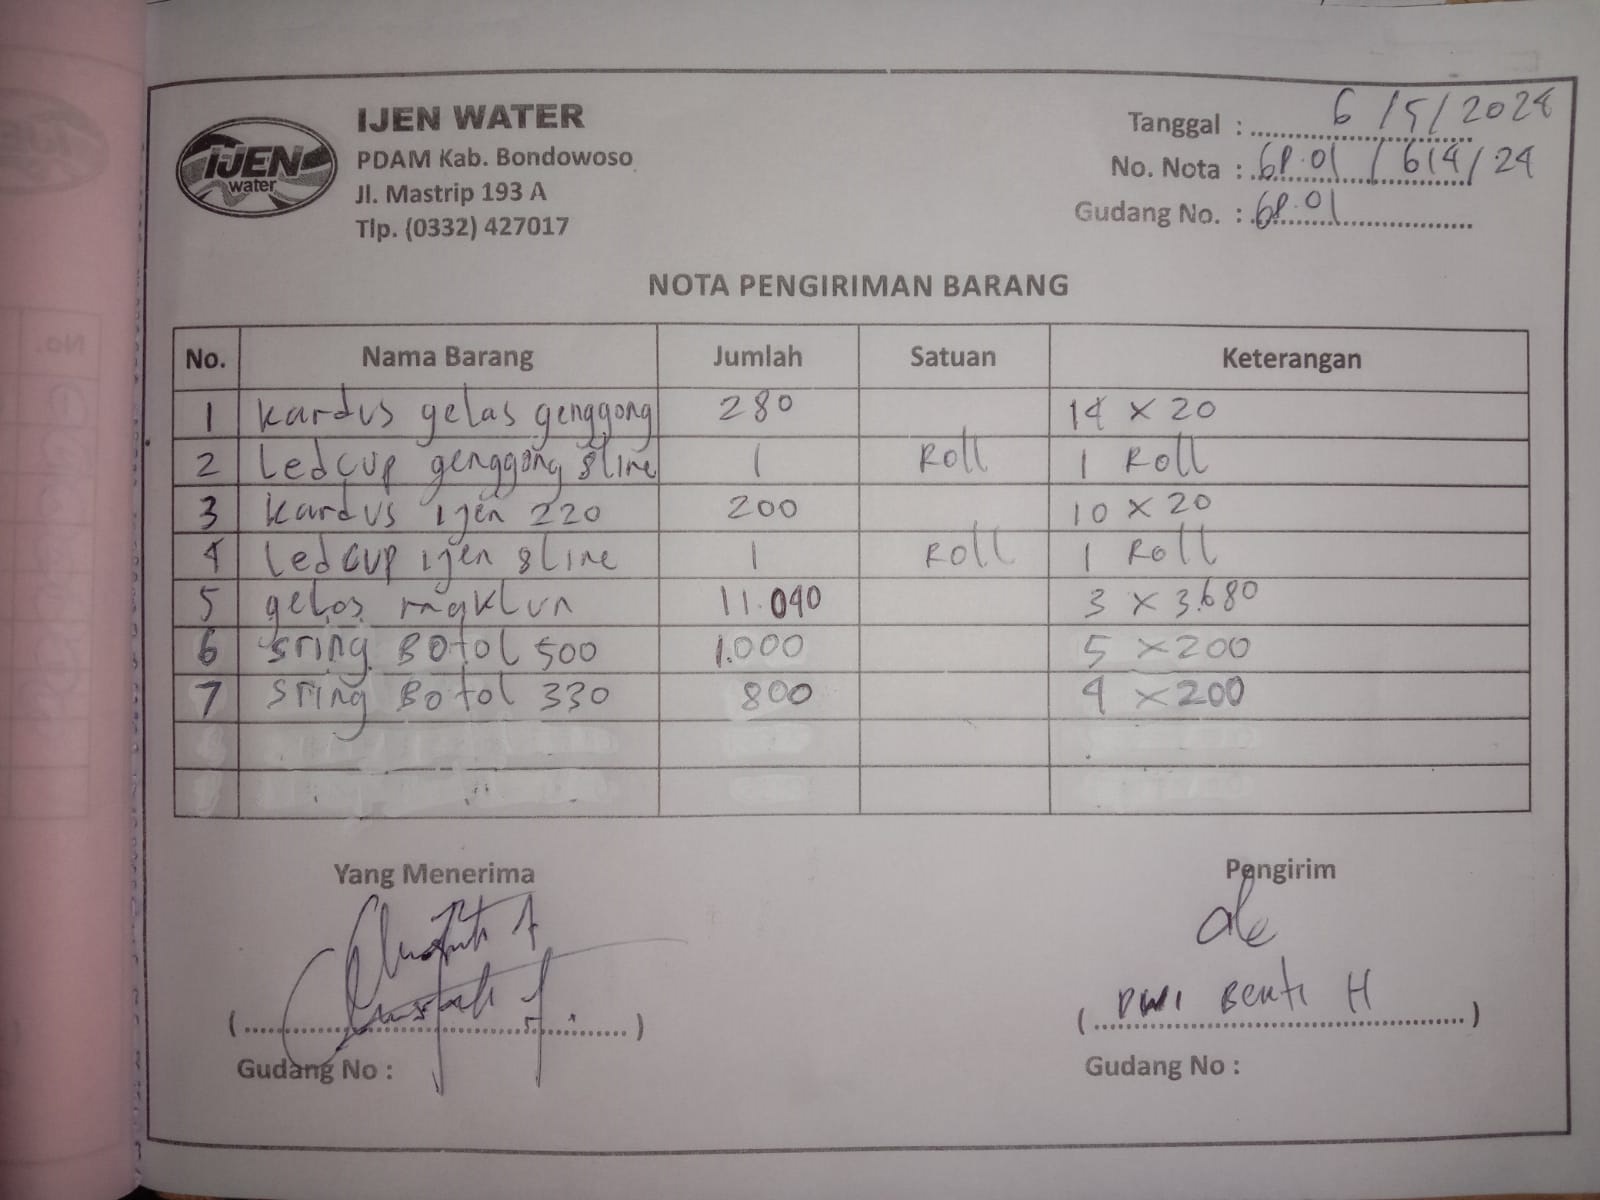 IJEN WATER
IJEN water
PDAM Kab. Bondowoso
Jl. Mastrip 193 A
Tlp. (0332) 427017
Tanggal : 6 / 5 / 2024
No. Nota : GP.01 / 614 / 24
Gudang No. : GP.01
NOTA PENGIRIMAN BARANG
No. Nama Barang Jumlah Satuan Keterangan
1 Kardus gelas genggong 280 14 x 20
2 Ledcup genggong 8line 1 Roll 1 Roll
3 Kardus ijen 220 200 10 x 20
4 Ledcup ijen 8line 1 Roll 1 Roll
5 gelas maklun 11.040 3 x 3.680
6 Sring Botol 500 1.000 5 x 200
7 Sring Botol 330 800 4 x 200
Yang Menerima Pengirim
( ) ( Dwi H )
Gudang No : Gudang No :